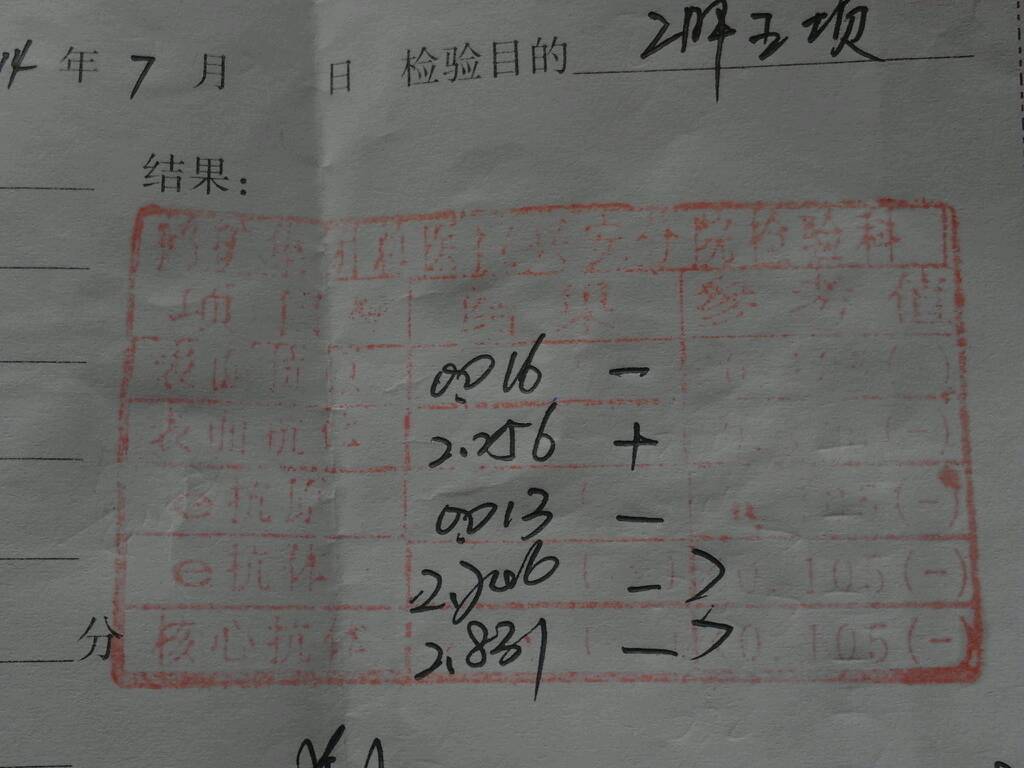 14 年 7 月 日 检验目的 2肝五项
结果:
检验科
项 目 结 果 参 考 值
表面抗原 0.016 −
表面抗体 2.256 + (-)
e抗原 0.013 − 105(-)
e抗体 − 0.105(-)
核心抗体 2.831 − 0.105(-)
分